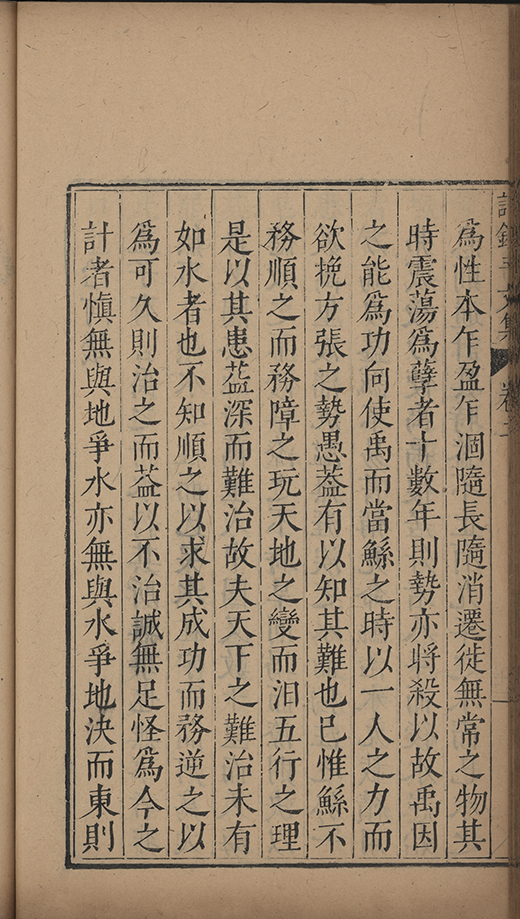 為性本乍盈乍涸隨長隨消遷徙無常之物其
時震蕩為孽者十數年則勢亦將殺以故禹因
之能為功向使禹而當鯀之時以一人之力而
欲挽方張之勢愚葢有以知其難也已惟鯀不
務順之而務障之玩天地之變而汨五行之理
是以其患葢深而難治故夫天下之難治未有
如水者也不知順之以求其成功而務逆之以
為可久則治之而葢以不治誠無足怪為今之
計者慎無與地爭水亦無與水爭地決而東則